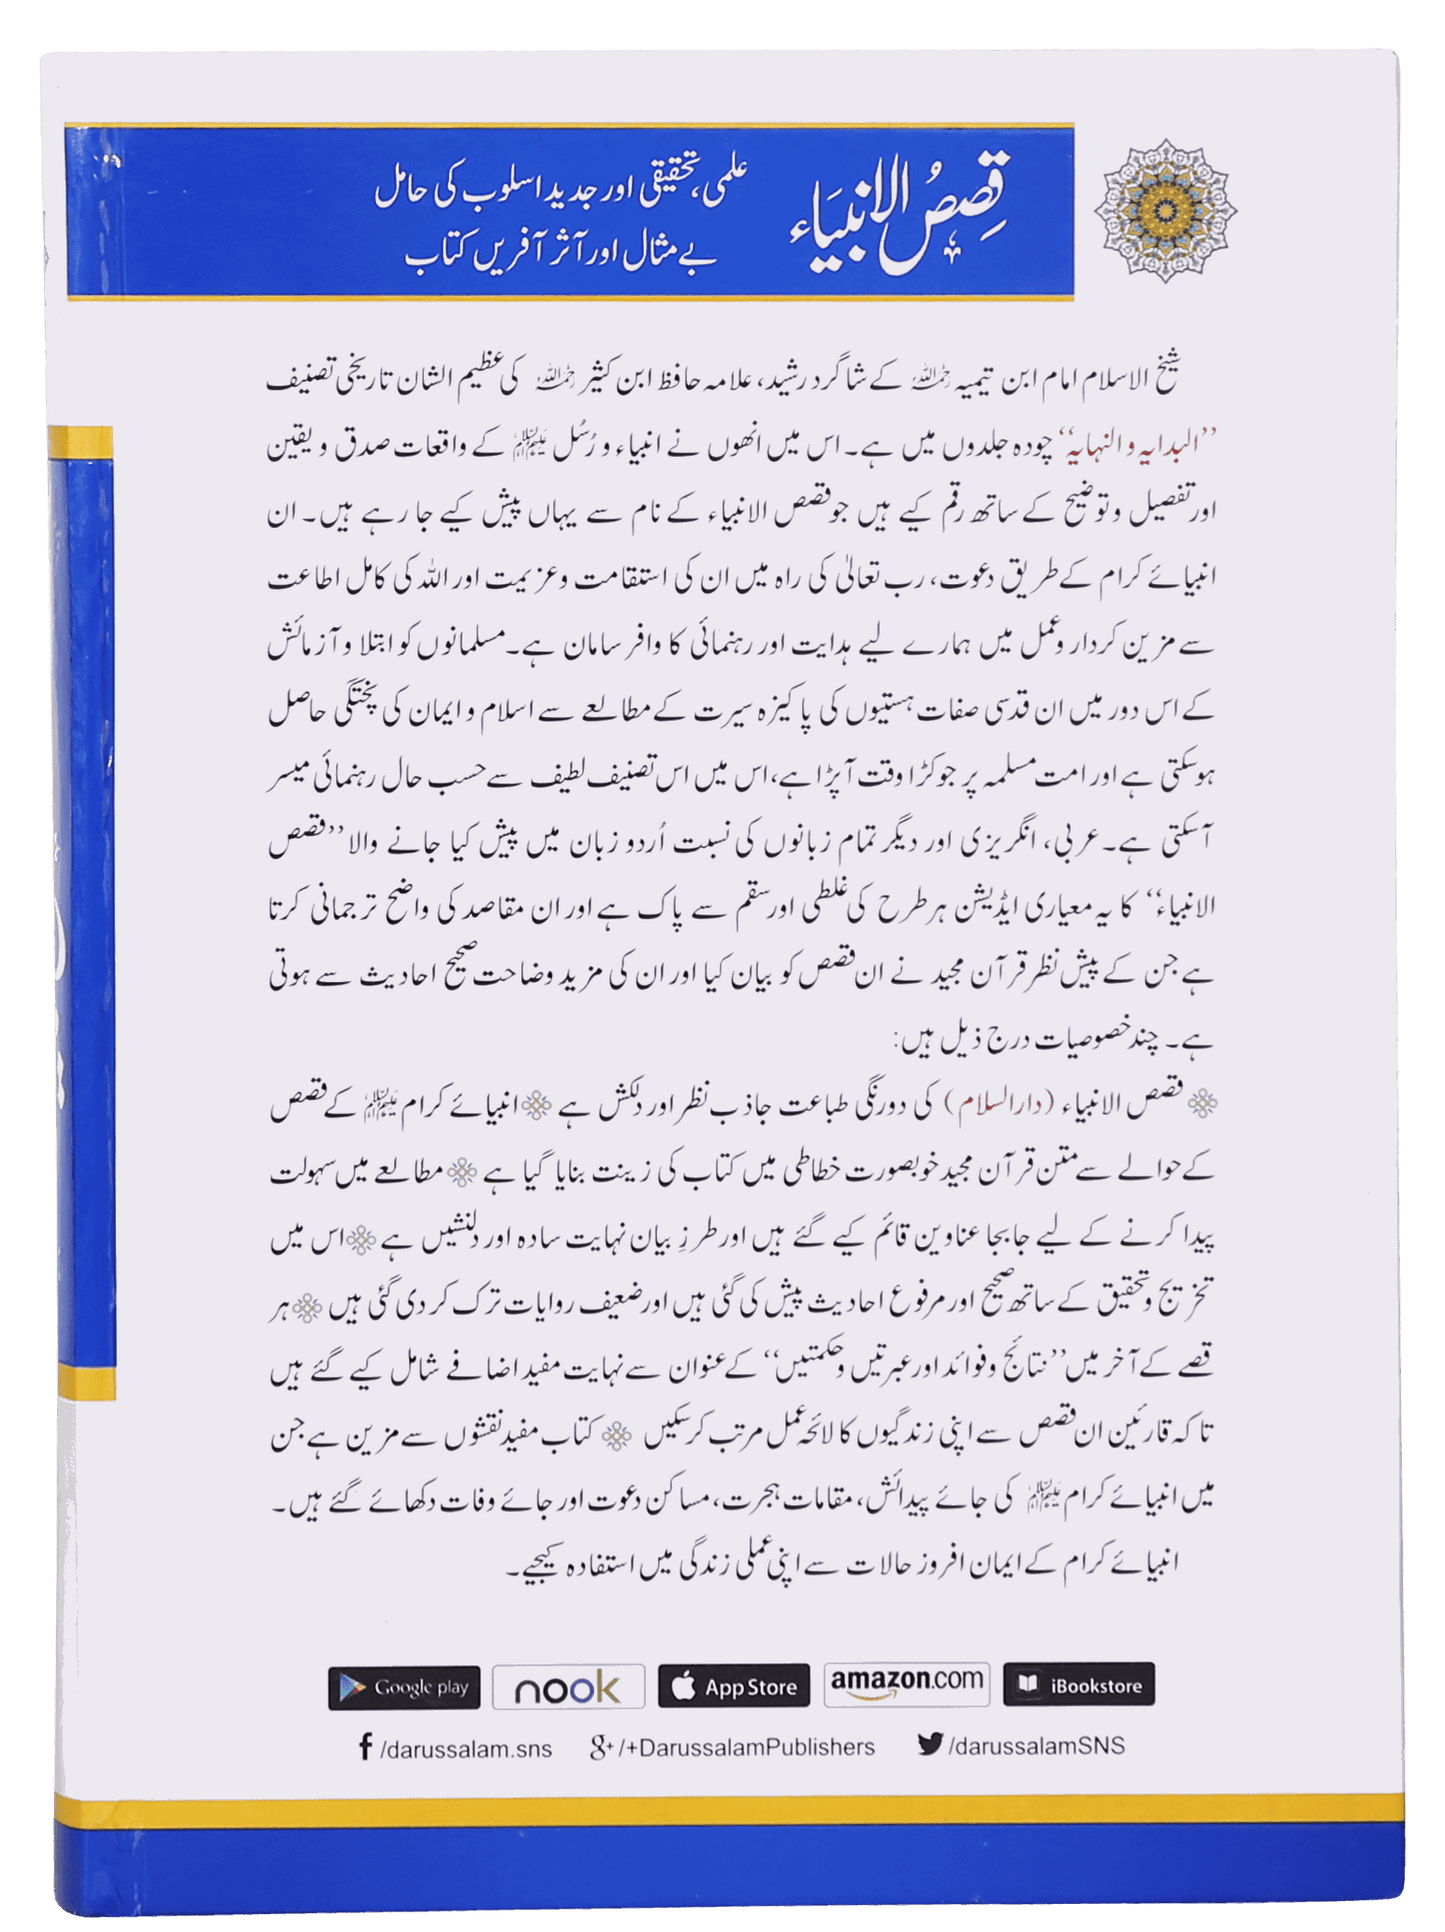 قصص الانبیاء
علمی، تحقیقی اور جدید اسلوب کی حامل
بے مثال اور آثر آفریں کتاب
شیخ الاسلام امام ابن تیمیہ رحمہ اللہ کے شاگرد رشید، علامہ حافظ ابن کثیر رحمہ اللہ کی عظیم الشان تاریخی تصنیف
’’البدایہ و النہایہ‘‘ چودہ جلدوں میں ہے۔ اس میں انھوں نے انبیاء و رُسُل علیہم السلام کے واقعات صدق و یقین
اور تفصیل و توضیح کے ساتھ رقم کیے ہیں جو قصص الانبیاء کے نام سے یہاں پیش کیے جا رہے ہیں۔ ان
انبیائے کرام کے طریق دعوت، رب تعالیٰ کی راہ میں ان کی استقامت و عزیمت اور اللہ کی کامل اطاعت
سے مزین کردار و عمل میں ہمارے لیے ہدایت اور رہنمائی کا وافر سامان ہے۔ مسلمانوں کو ابتلا و آزمائش
کے اس دور میں ان قدسی صفات ہستیوں کی پاکیزہ سیرت کے مطالعے سے اسلام و ایمان کی پختگی حاصل
ہوسکتی ہے اور امت مسلمہ پر جو کڑا وقت آپڑا ہے، اس میں اس تصنیف لطیف سے حسب حال رہنمائی میسر
آسکتی ہے۔ عربی، انگریزی اور دیگر تمام زبانوں کی نسبت اُردو زبان میں پیش کیا جانے والا ’’قصص
الانبیاء‘‘ کا یہ معیاری ایڈیشن ہر طرح کی غلطی اور سقم سے پاک ہے اور ان مقاصد کی واضح ترجمانی کرتا
ہے جن کے پیش نظر قرآن مجید نے ان قصص کو بیان کیا اور ان کی مزید وضاحت صحیح احادیث سے ہوتی
ہے۔ چند خصوصیات درج ذیل ہیں:
قصص الانبیاء (دارالسلام) کی دورنگی طباعت جاذب نظر اور دلکش ہے انبیائے کرام علیہم السلام کے قصص
کے حوالے سے متن قرآن مجید خوبصورت خطاطی میں کتاب کی زینت بنایا گیا ہے مطالعے میں سہولت
پیدا کرنے کے لیے جابجا عناوین قائم کیے گئے ہیں اور طرزِ بیان نہایت سادہ اور دلنشیں ہے اس میں
تخریج و تحقیق کے ساتھ صحیح اور مرفوع احادیث پیش کی گئی ہیں اور ضعیف روایات ترک کر دی گئی ہیں ہر
قصے کے آخر میں ’’نتائج و فوائد اور عبرتیں و حکمتیں‘‘ کے عنوان سے نہایت مفید اضافے شامل کیے گئے ہیں
تاکہ قارئین ان قصص سے اپنی زندگیوں کا لائحہ عمل مرتب کر سکیں کتاب مفید نقشوں سے مزین ہے جن
میں انبیائے کرام علیہم السلام کی جائے پیدائش، مقامات ہجرت، مساکن دعوت اور جائے وفات دکھائے گئے ہیں۔
انبیائے کرام کے ایمان افروز حالات سے اپنی عملی زندگی میں استفادہ کیجیے۔
Google play nook App Store amazon.com iBookstore
f /darussalam.sns g+ /+DarussalamPublishers /darussalamSNS